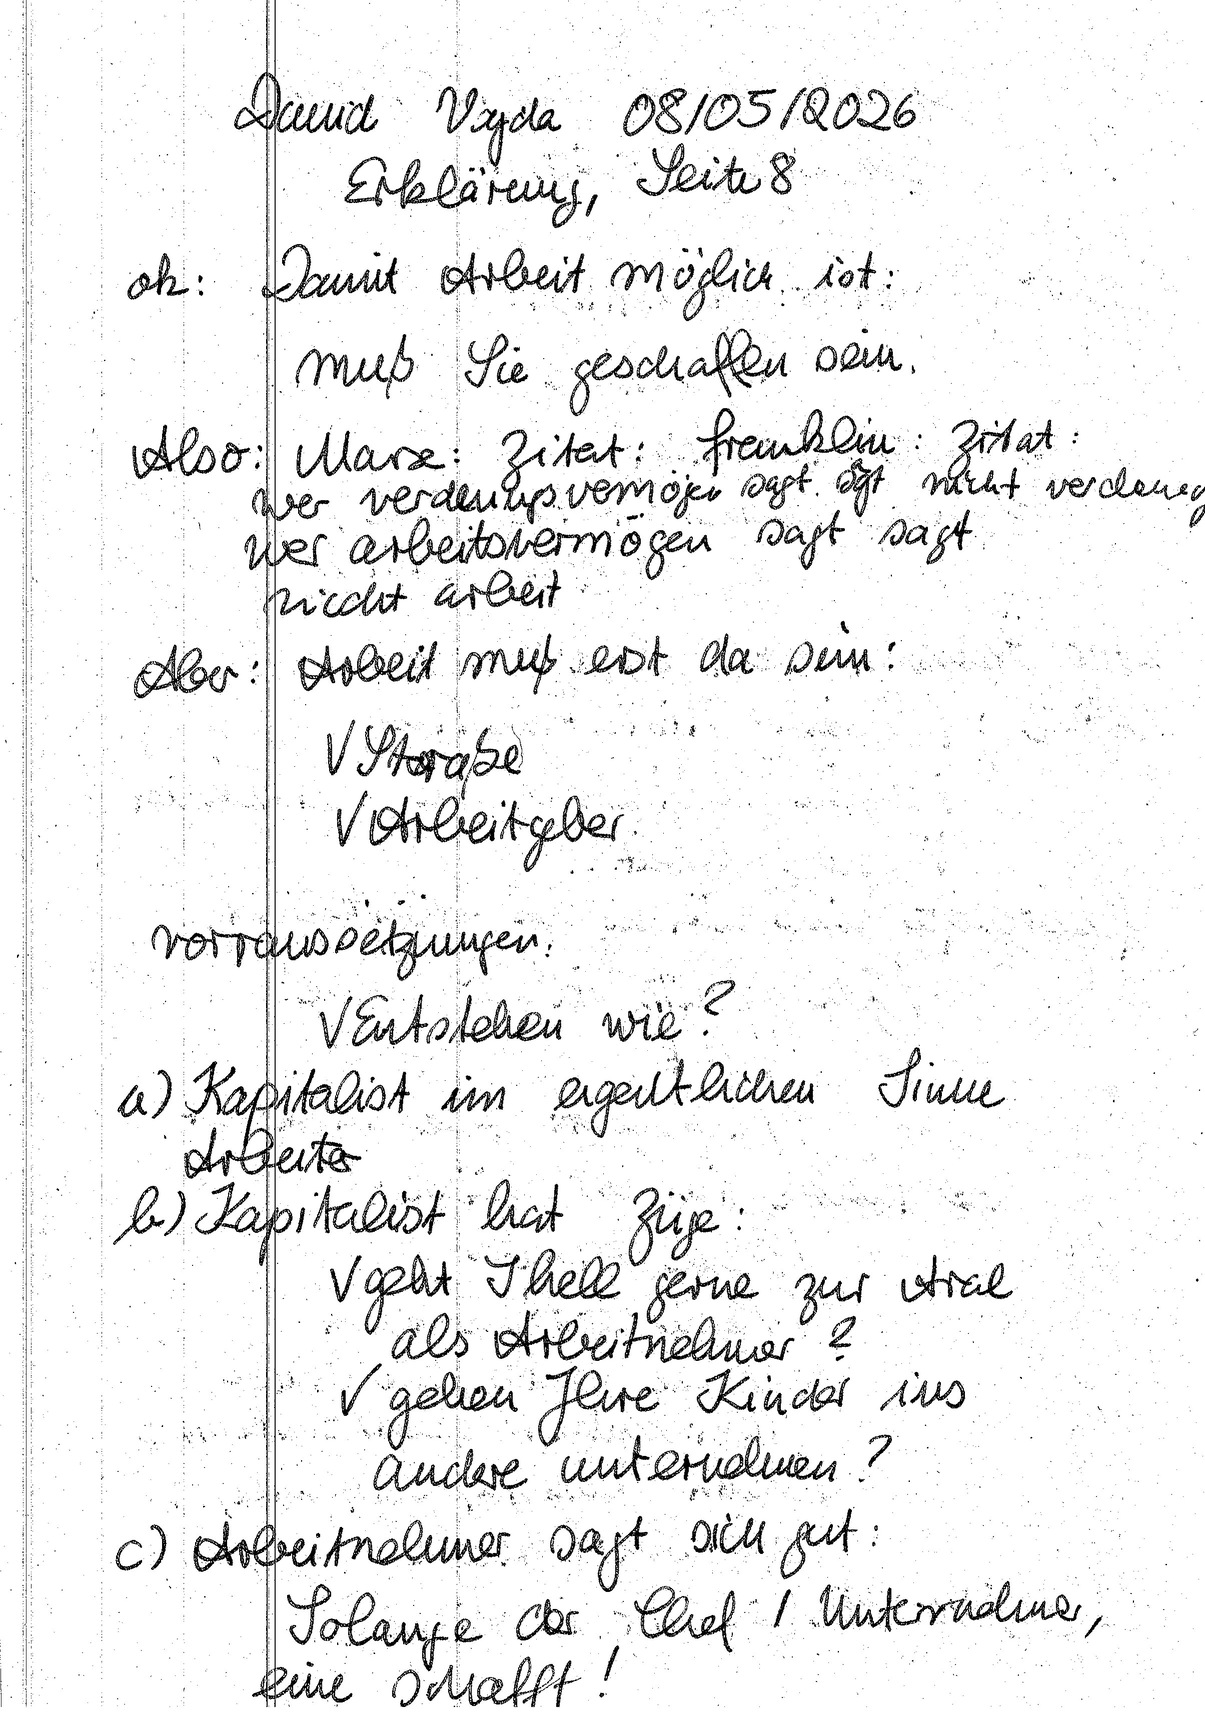 David Vajda 08/05/2026
Erklärung, Seite 8
ok: Damit Arbeit möglich ist:
muß Sie geschaffen sein.
Also: Marx: Zitat: franklin: Zitat:
wer verdauungsvermögen sagt sagt nicht verdauung
wer arbeitsvermögen sagt sagt
nicht arbeit
Aber: Arbeit muß erst da sein:
√ Straße
√ Arbeitgeber
vorraussetzungen.
√ Entstehen wie?
a) Kapitalist im eigentlichen Sinne
Arbeiter
b) Kapitalist hat Züge:
√ geht Shell gerne zur Aral
als Arbeitnehmer?
√ gehen Ihre Kinder ins
andere unternehmen?
c) Arbeitnehmer sagt sich gut:
Solange der Chef / Unternehmer,
eine schafft!